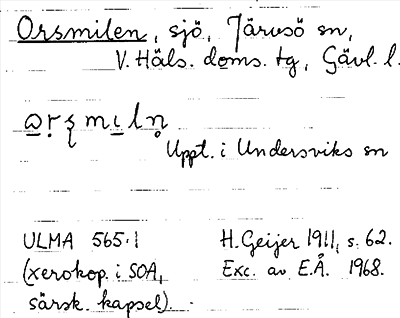 Orsmilen, sjö, Järvsö sn,
V. Häls. doms. tg, Gävl. l.
Uppt. i Undersviks sn
ULMA 565:1
(xerokop. i SOA,
särsk. kapsel).
H. Geijer 1911, s. 62.
Exc. av E.Å. 1968.